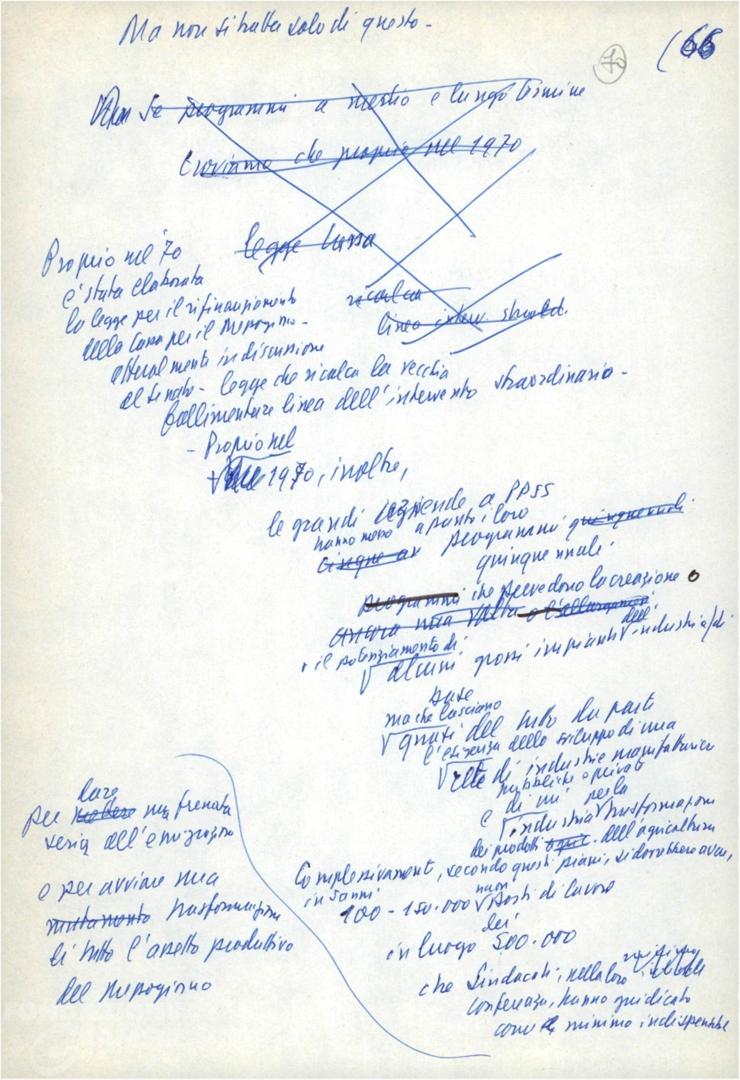 Ma non si tratta solo di questo -
70
(66
Se programmi a medio e lungo termine
Troviamo che proprio nel 1970
legge tassa
Proprio nel '70
è stata elaborata
la legge per il rifinanziamento
della Cassa per il Mezzogiorno -
attualmente in discussione
al Senato - legge che ricalca la vecchia
fallimentare linea dell'intervento straordinario -
ricalca
linea interv straord.
- Proprio nel
1970, inoltre,
le grandi aziende a PPSS
hanno messo a punto i loro
programmi quinquennali
quinquennali
programmi che prevedono la creazione o
ancora una volta e l'allargamento
il potenziamento di
alcuni grossi impianti industriali
base
ma che lasciano
quasi del tutto da parte
l'esigenza dello sviluppo di una
rete di industrie manifatturiere
pubbliche e private
e di una per la
industria trasformazione
dei prodotti dell'agricoltura
Complessivamente, secondo questi piani, si dovrebbero avere,
in 5 anni
100 - 150.000 nuovi posti di lavoro
in luogo dei 500.000
che Sindacati, nella loro
conferenza, hanno giudicato
come minimo indispensabile
per dare una frenata
seria all'emigrazione
e per avviare una
mutamento trasformazione
di tutto l'assetto produttivo
del Mezzogiorno